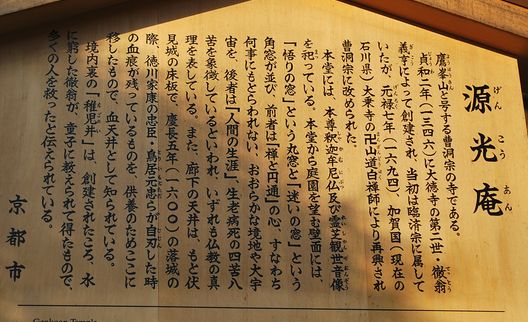 源光庵
げんこうあん
鷹峯山と号する曹洞宗の寺である。
貞和二年（一三四六）に大徳寺の第二世・徹翁
義亨によって創建され、当初は臨済宗に属して
いたが、元禄七年（一六九四）、加賀国（現在の
石川県）大乗寺の卍山道白禅師により再興され
曹洞宗に改められた。
本堂には、本尊釈迦牟尼仏及び霊芝観世音像
を祀っている。本堂から庭園を望む壁面には、
「悟りの窓」という丸窓と「迷いの窓」という
角窓が並び、前者は「禅と円通」の心、すなわち
何事にもとらわれない、おおらかな境地や大宇
宙を、後者は「人間の生涯」、生老病死の四苦八
苦を象徴しているといわれ、いずれも仏教の真
理を表している。また、廊下の天井は、もと伏
見城の床板で、慶長五年（一六〇〇）の落城の
際、徳川家康の忠臣・鳥居元忠らが自刃した時
の血痕が残っているものを、供養のためここに
移したもので、血天井として知られている。
境内裏の「稚児井」は、創建されたころ、水
に窮した徹翁が、童子に教えられて得たもので、
多くの人を救ったと伝えられている。
京都市
Genkoan Temple